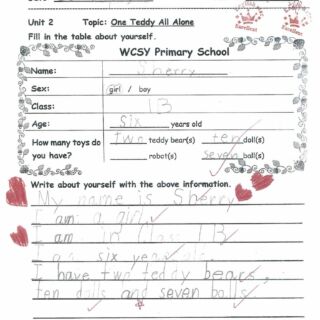 Unit 2 Topic: One Teddy All Alone
Fill in the table about yourself.
WCSY Primary School
Name: Sherry
Sex: girl / boy
Class: 1B
Age: six years old
How many toys do you have? two teddy bear(s) ten doll(s)
robot(s) seven ball(s)
Write about yourself with the above information.
My name is Sherry
I am a girl.
I am in Class 1B
I six years old.
I have two teddy bears,
ten dolls and seven balls.
Excellent
Excellent